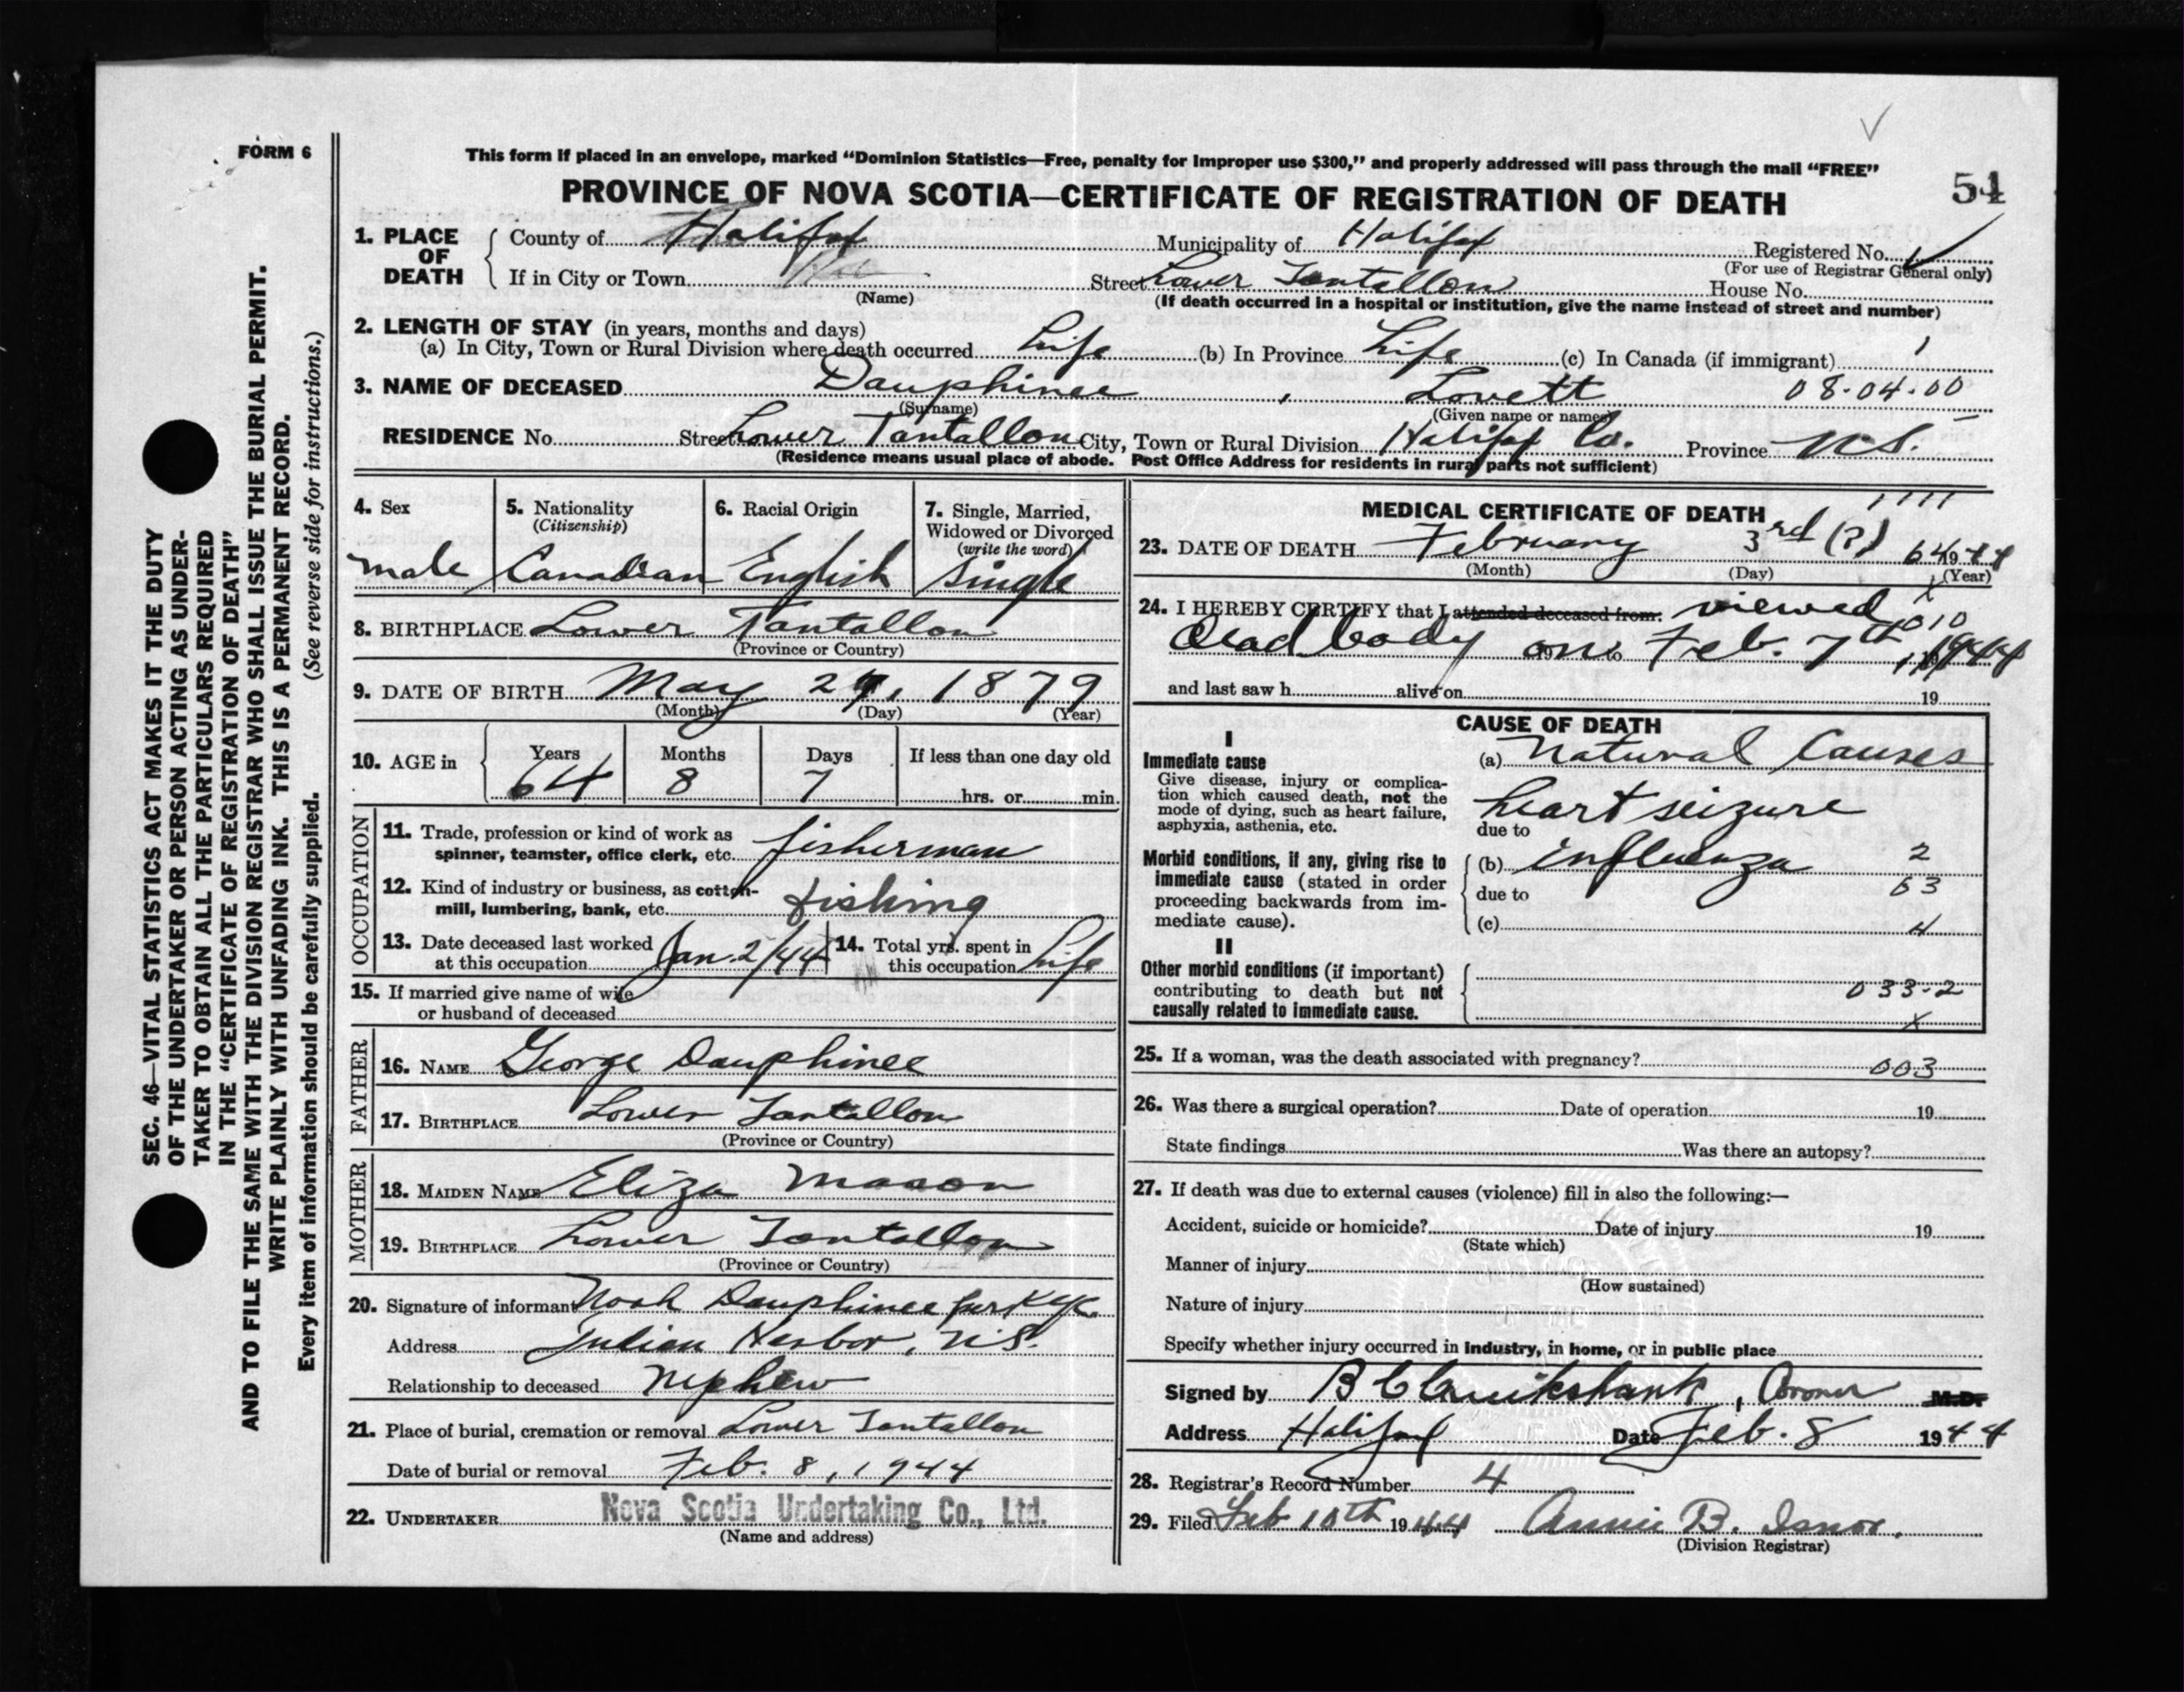 FORM 6
SEC. 46—VITAL STATISTICS ACT MAKES IT THE DUTY
OF THE UNDERTAKER OR PERSON ACTING AS UNDER-
TAKER TO OBTAIN ALL THE PARTICULARS REQUIRED
IN THE "CERTIFICATE OF REGISTRATION OF DEATH"
AND TO FILE THE SAME WITH THE DIVISION REGISTRAR WHO SHALL ISSUE THE BURIAL PERMIT.
WRITE PLAINLY WITH UNFADING INK. THIS IS A PERMANENT RECORD.
Every item of information should be carefully supplied. (See reverse side for instructions.)
This form if placed in an envelope, marked "Dominion Statistics—Free, penalty for Improper use $300," and properly addressed will pass through the mail "FREE"
PROVINCE OF NOVA SCOTIA—CERTIFICATE OF REGISTRATION OF DEATH 54
1. PLACE OF DEATH County of Halifax Municipality of Halifax Registered No.
(For use of Registrar General only)
If in City or Town Street Lower Tantallon House No.
(Name) (If death occurred in a hospital or institution, give the name instead of street and number)
2. LENGTH OF STAY (in years, months and days)
(a) In City, Town or Rural Division where death occurred Life (b) In Province Life (c) In Canada (if immigrant)
3. NAME OF DECEASED Dauphinee, Lovett 08-04-00
(Surname) (Given name or names)
RESIDENCE No. Street Lower Tantallon City, Town or Rural Division Halifax Co. Province N.S.
(Residence means usual place of abode. Post Office Address for residents in rural parts not sufficient)
4. Sex 5. Nationality 6. Racial Origin 7. Single, Married,
(Citizenship) Widowed or Divorced
(write the word)
male Canadian English Single
8. BIRTHPLACE Lower Tantallon
(Province or Country)
9. DATE OF BIRTH May 27, 1879
(Month) (Day) (Year)
10. AGE in Years Months Days If less than one day old
64 8 7 hrs. or min.
OCCUPATION
11. Trade, profession or kind of work as
spinner, teamster, office clerk, etc. fisherman
12. Kind of industry or business, as cotton-
mill, lumbering, bank, etc. fishing
13. Date deceased last worked
at this occupation Jan. 2/44
14. Total yrs. spent in
this occupation Life
15. If married give name of wife
or husband of deceased
FATHER
16. NAME George Dauphinee
17. BIRTHPLACE Lower Tantallon
(Province or Country)
MOTHER
18. MAIDEN NAME Eliza Mason
19. BIRTHPLACE Lower Tantallon
(Province or Country)
20. Signature of informant Noah Dauphinee per
Address Harbor, N.S.
Relationship to deceased Nephew
21. Place of burial, cremation or removal Lower Tantallon
Date of burial or removal Feb. 8, 1944
22. UNDERTAKER Nova Scotia Undertaking Co., Ltd.
(Name and address)
MEDICAL CERTIFICATE OF DEATH
23. DATE OF DEATH February 3rd (?) 64 1944
(Month) (Day) (Year)
24. I HEREBY CERTIFY that I attended deceased from: viewed
dead body on Feb. 7th, 1944
010
and last saw h alive on 19
CAUSE OF DEATH
I
Immediate cause
Give disease, injury or complica-
tion which caused death, not the
mode of dying, such as heart failure,
asphyxia, asthenia, etc.
(a) Natural Causes
heart seizure
due to
Morbid conditions, if any, giving rise to
immediate cause (stated in order
proceeding backwards from im-
mediate cause).
(b) influenza 2
due to 63
(c) 4
II
Other morbid conditions (if important)
contributing to death but not
causally related to immediate cause.
033-2
x
25. If a woman, was the death associated with pregnancy? 003
26. Was there a surgical operation? Date of operation 19
State findings Was there an autopsy?
27. If death was due to external causes (violence) fill in also the following:—
Accident, suicide or homicide? Date of injury 19
(State which)
Manner of injury
(How sustained)
Nature of injury
Specify whether injury occurred in industry, in home, or in public place
Signed by B C Cruikshank, Coroner M.D.
Address Halifax Date Feb. 8 1944
28. Registrar's Record Number 4
29. Filed Feb 10th 1944 Annie B. Isnor.
(Division Registrar)